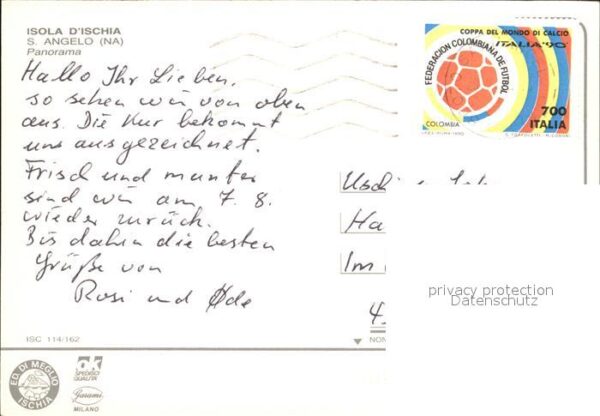 ISOLA D'ISCHIA
S. ANGELO (NA)
Panorama
Hallo Ihr Lieben,
so sehen wir von oben
aus. Die Kur bekommt
uns ausgezeichnet.
Frisch und munter
sind wir am 7. 8.
wieder zurück.
Bis dahin die besten
Grüße von
Rosi und
ISC 114/162
ED. DI MEGLIO
ISCHIA
ok
SPEDISCI
QUALITÀ
Garami
MILANO
COPPA DEL MONDO DI CALCIO
ITALIA '90
FEDERACION COLOMBIANA DE FUTBOL
COLOMBIA
700
ITALIA
Uschi
Ha
Im
4
NON
privacy protection
Datenschutz